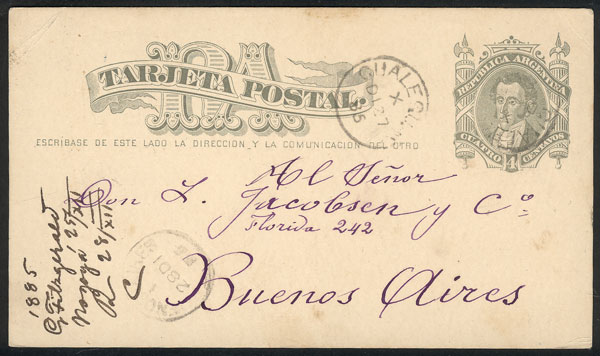 RA
TARJETA POSTAL.
ESCRIBASE DE ESTE LADO LA DIRECCION, Y LA COMUNICACION DEL OTRO
REPUBLICA ARGENTINA
CUATRO 4 CENTAVOS
GUALEGU
Al Señor
Don L. Jacobsen y Cº
Florida 242
Buenos Aires
1885
C. Fitzgerald
Nogoyá 27/XII
R 28/XII
C